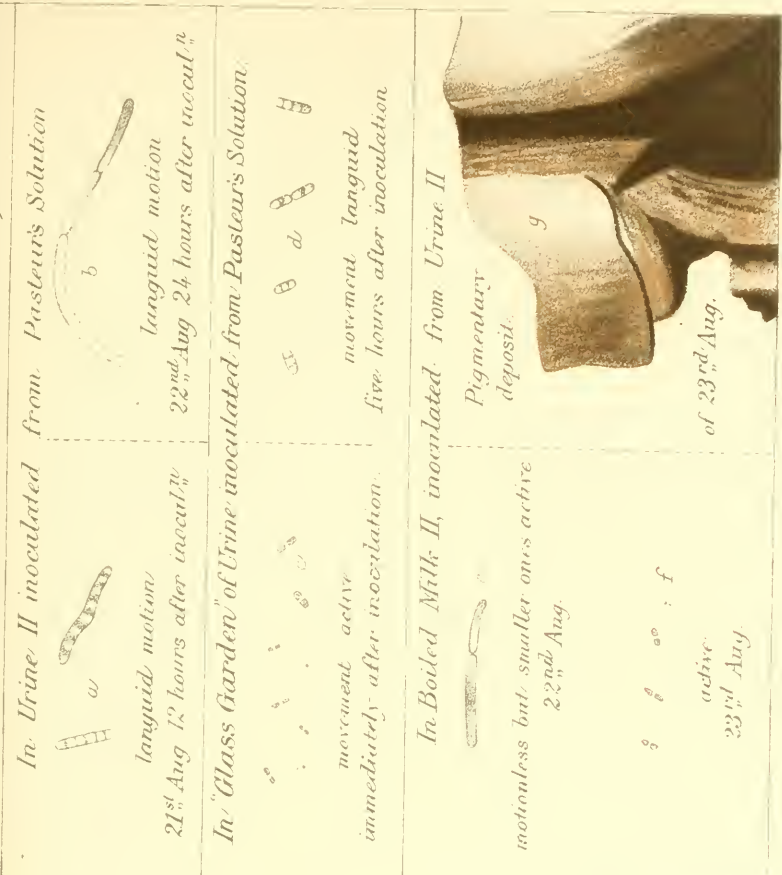 In Urine II inoculated from Pasteur's Solution
a
languid motion
21st Aug 12 hours after inoculn
b
languid motion
22nd Aug 24 hours after inoculn
In "Glass Garden" of Urine inoculated from Pasteur's Solution.
c
movement active
immediately after inoculation.
d
movement languid
five hours after inoculation
In Boiled Milk II, inoculated from Urine II
motionless but smaller ones active
22nd Aug.
f
active
23rd Aug.
Pigmentary
deposit.
g
of 23rd Aug.